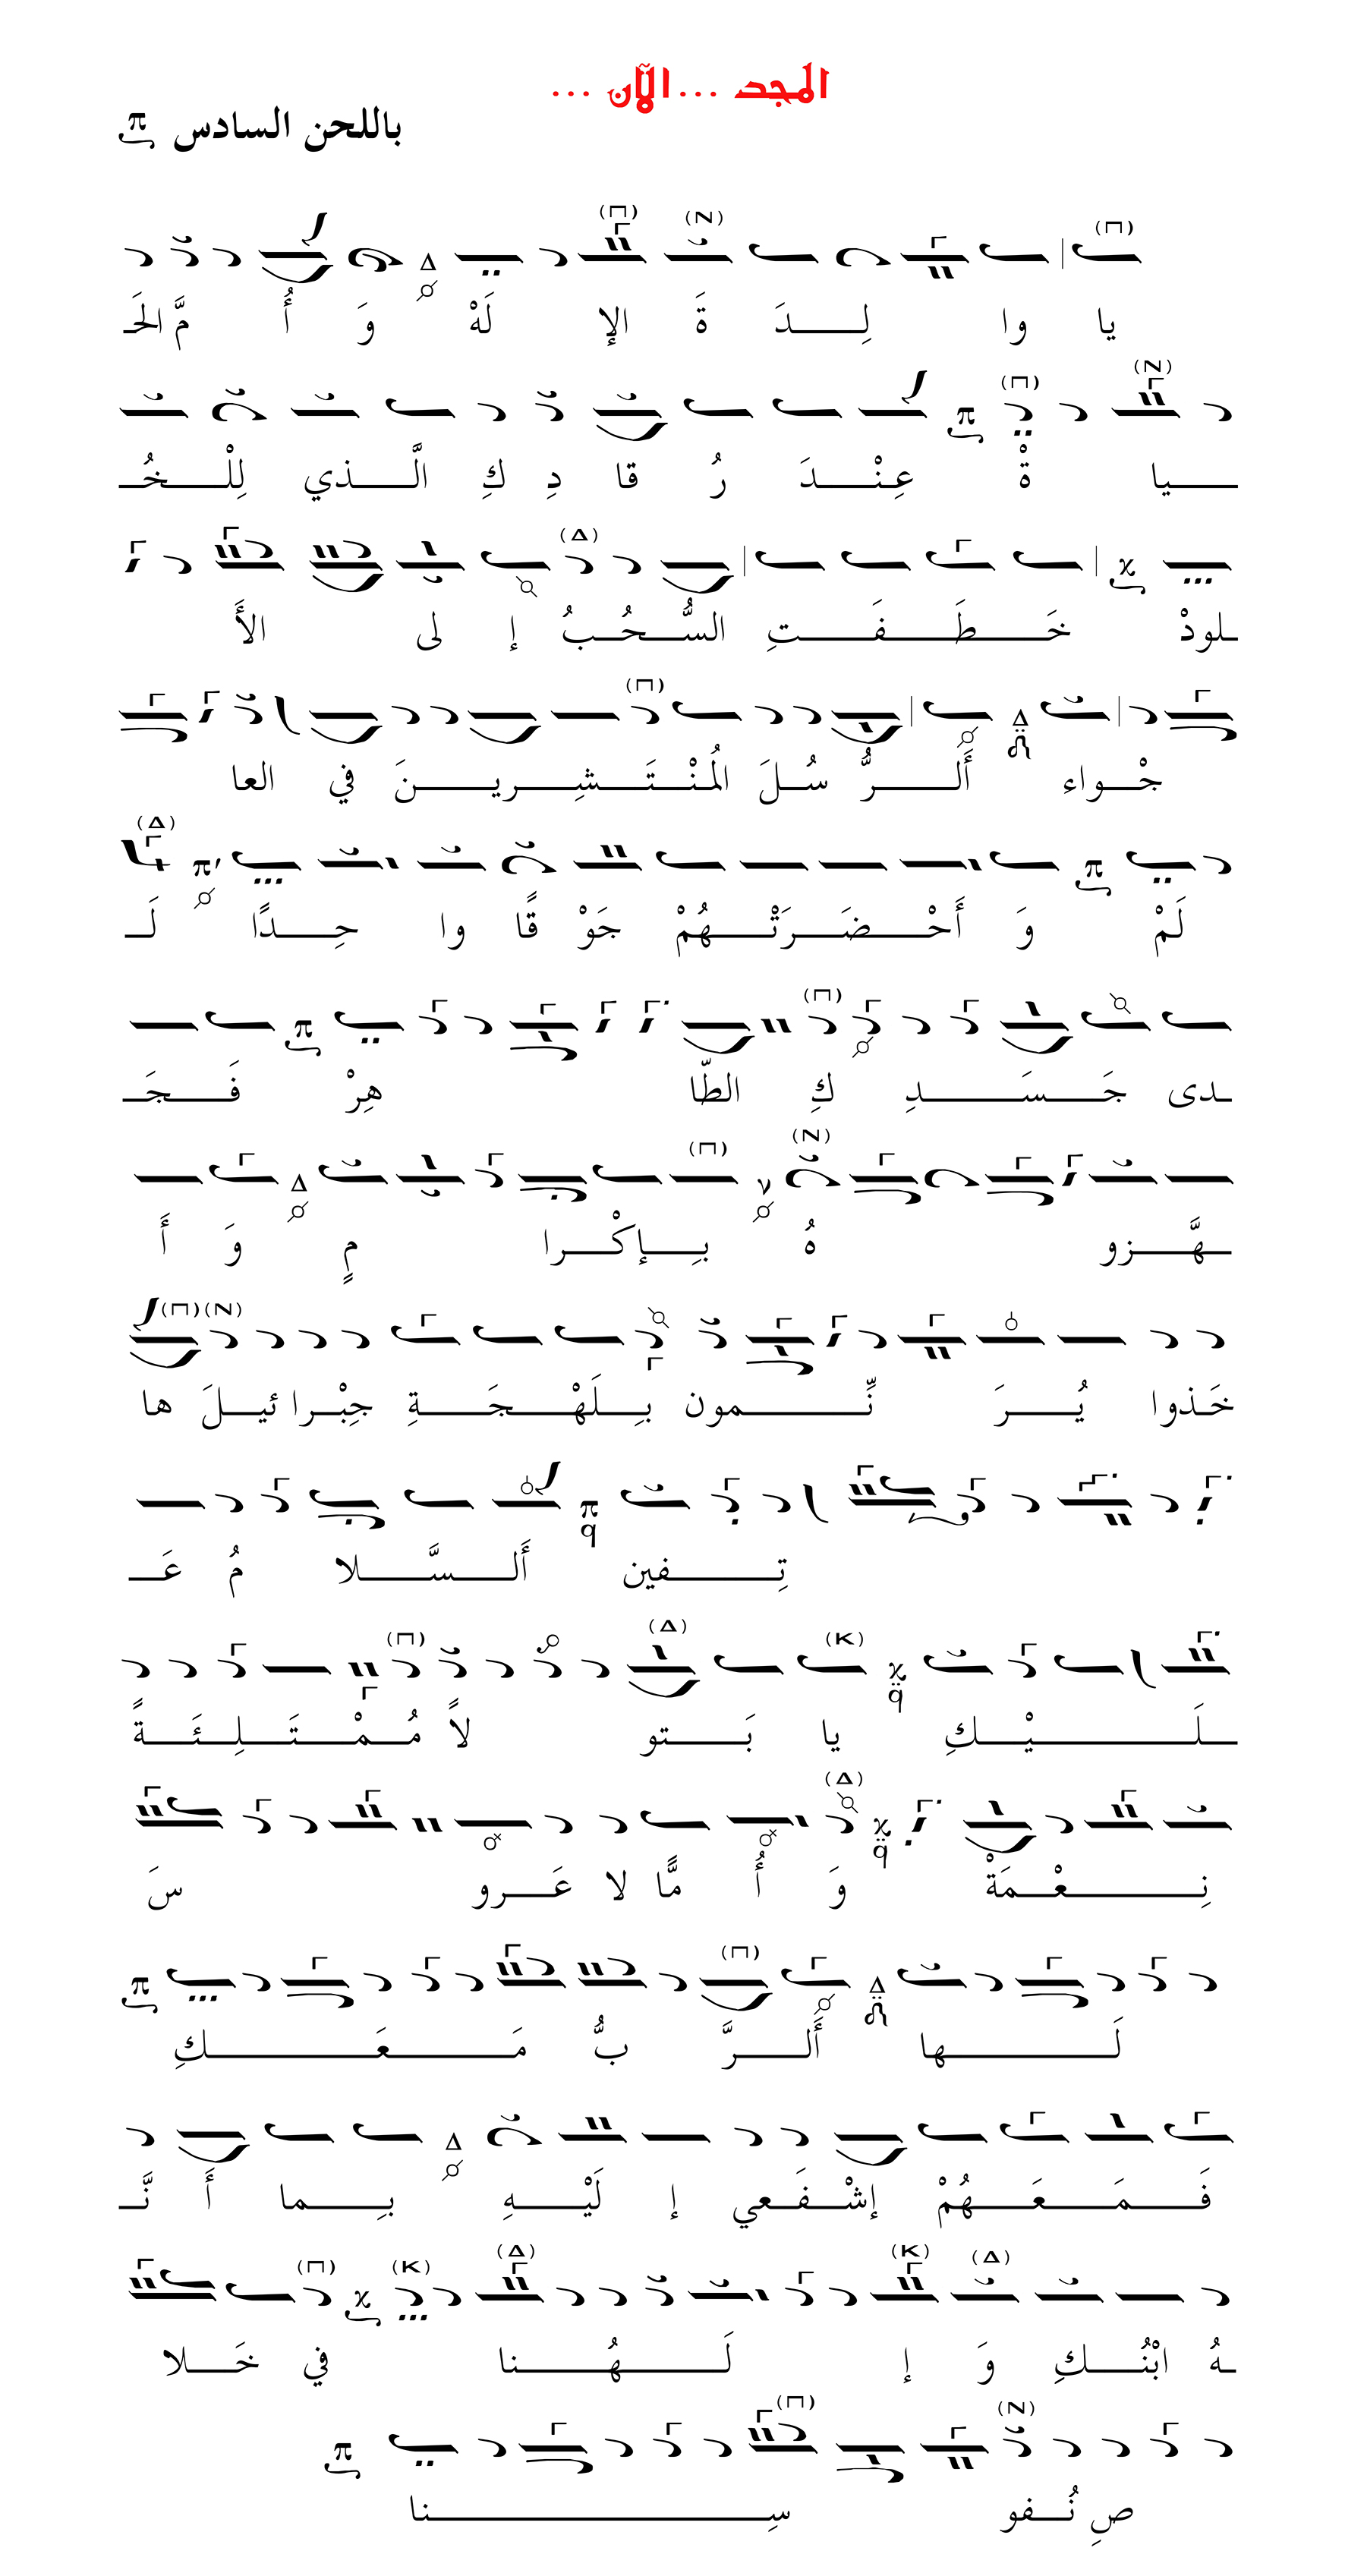 المجد ... الآن ...
باللحن السادس
يا وا لِـــدَ ةَ الإ لَهْ وَ أُ مَّ الحَـ
ـــيا ةْ عِـنْـــدَ رُ قا دِ كِ الَّـــذي لِلْـــخُـ
ـلودْ خَـــطَـــفَـــتِ السُّـــحُـــبُ إ لى الأَ
جْـــواء أَلـــرُّ سُـــلَ المُـنْـــتَـــشِـــريـــنَ في العا
لَـمْ وَ أَحْـــضَـــرَتْـــهُمْ جَوْ قًا وا حِـــدًا لَـ
ـدى جَـــسَـــدِ كِ الطّا هِرْ فَـــجَـ
ـهَّـــزو هُ بِـــإكْـــرا مٍ وَ أَ
خَـذوا يُـــرَ نِّـــمون بِـــلَهْـــجَـــةِ جِبْـــرا ئيـــلَ ها
تِـــفين أَلـــسَّـــلا مُ عَـ
ـلَـــيْـــكِ يا بَـــتو لاً مُـــمْـــتَـــلِـــئَـــةً
نِـــعْـــمَةْ وَ أُ مًّا لا عَـــرو سَ
لَـــها أَلـــرَّ بُّ مَـــعَـــكِ
فَـــمَـــعَـــهُمْ إشْـــفَـــعي إ لَيْـــهِ بِـــما أَ نَّـ
ـهُ ابْنُـــكِ وَ إ لَـــهُـــنا في خَـــلا
صِ نُـــفو سِـــنا